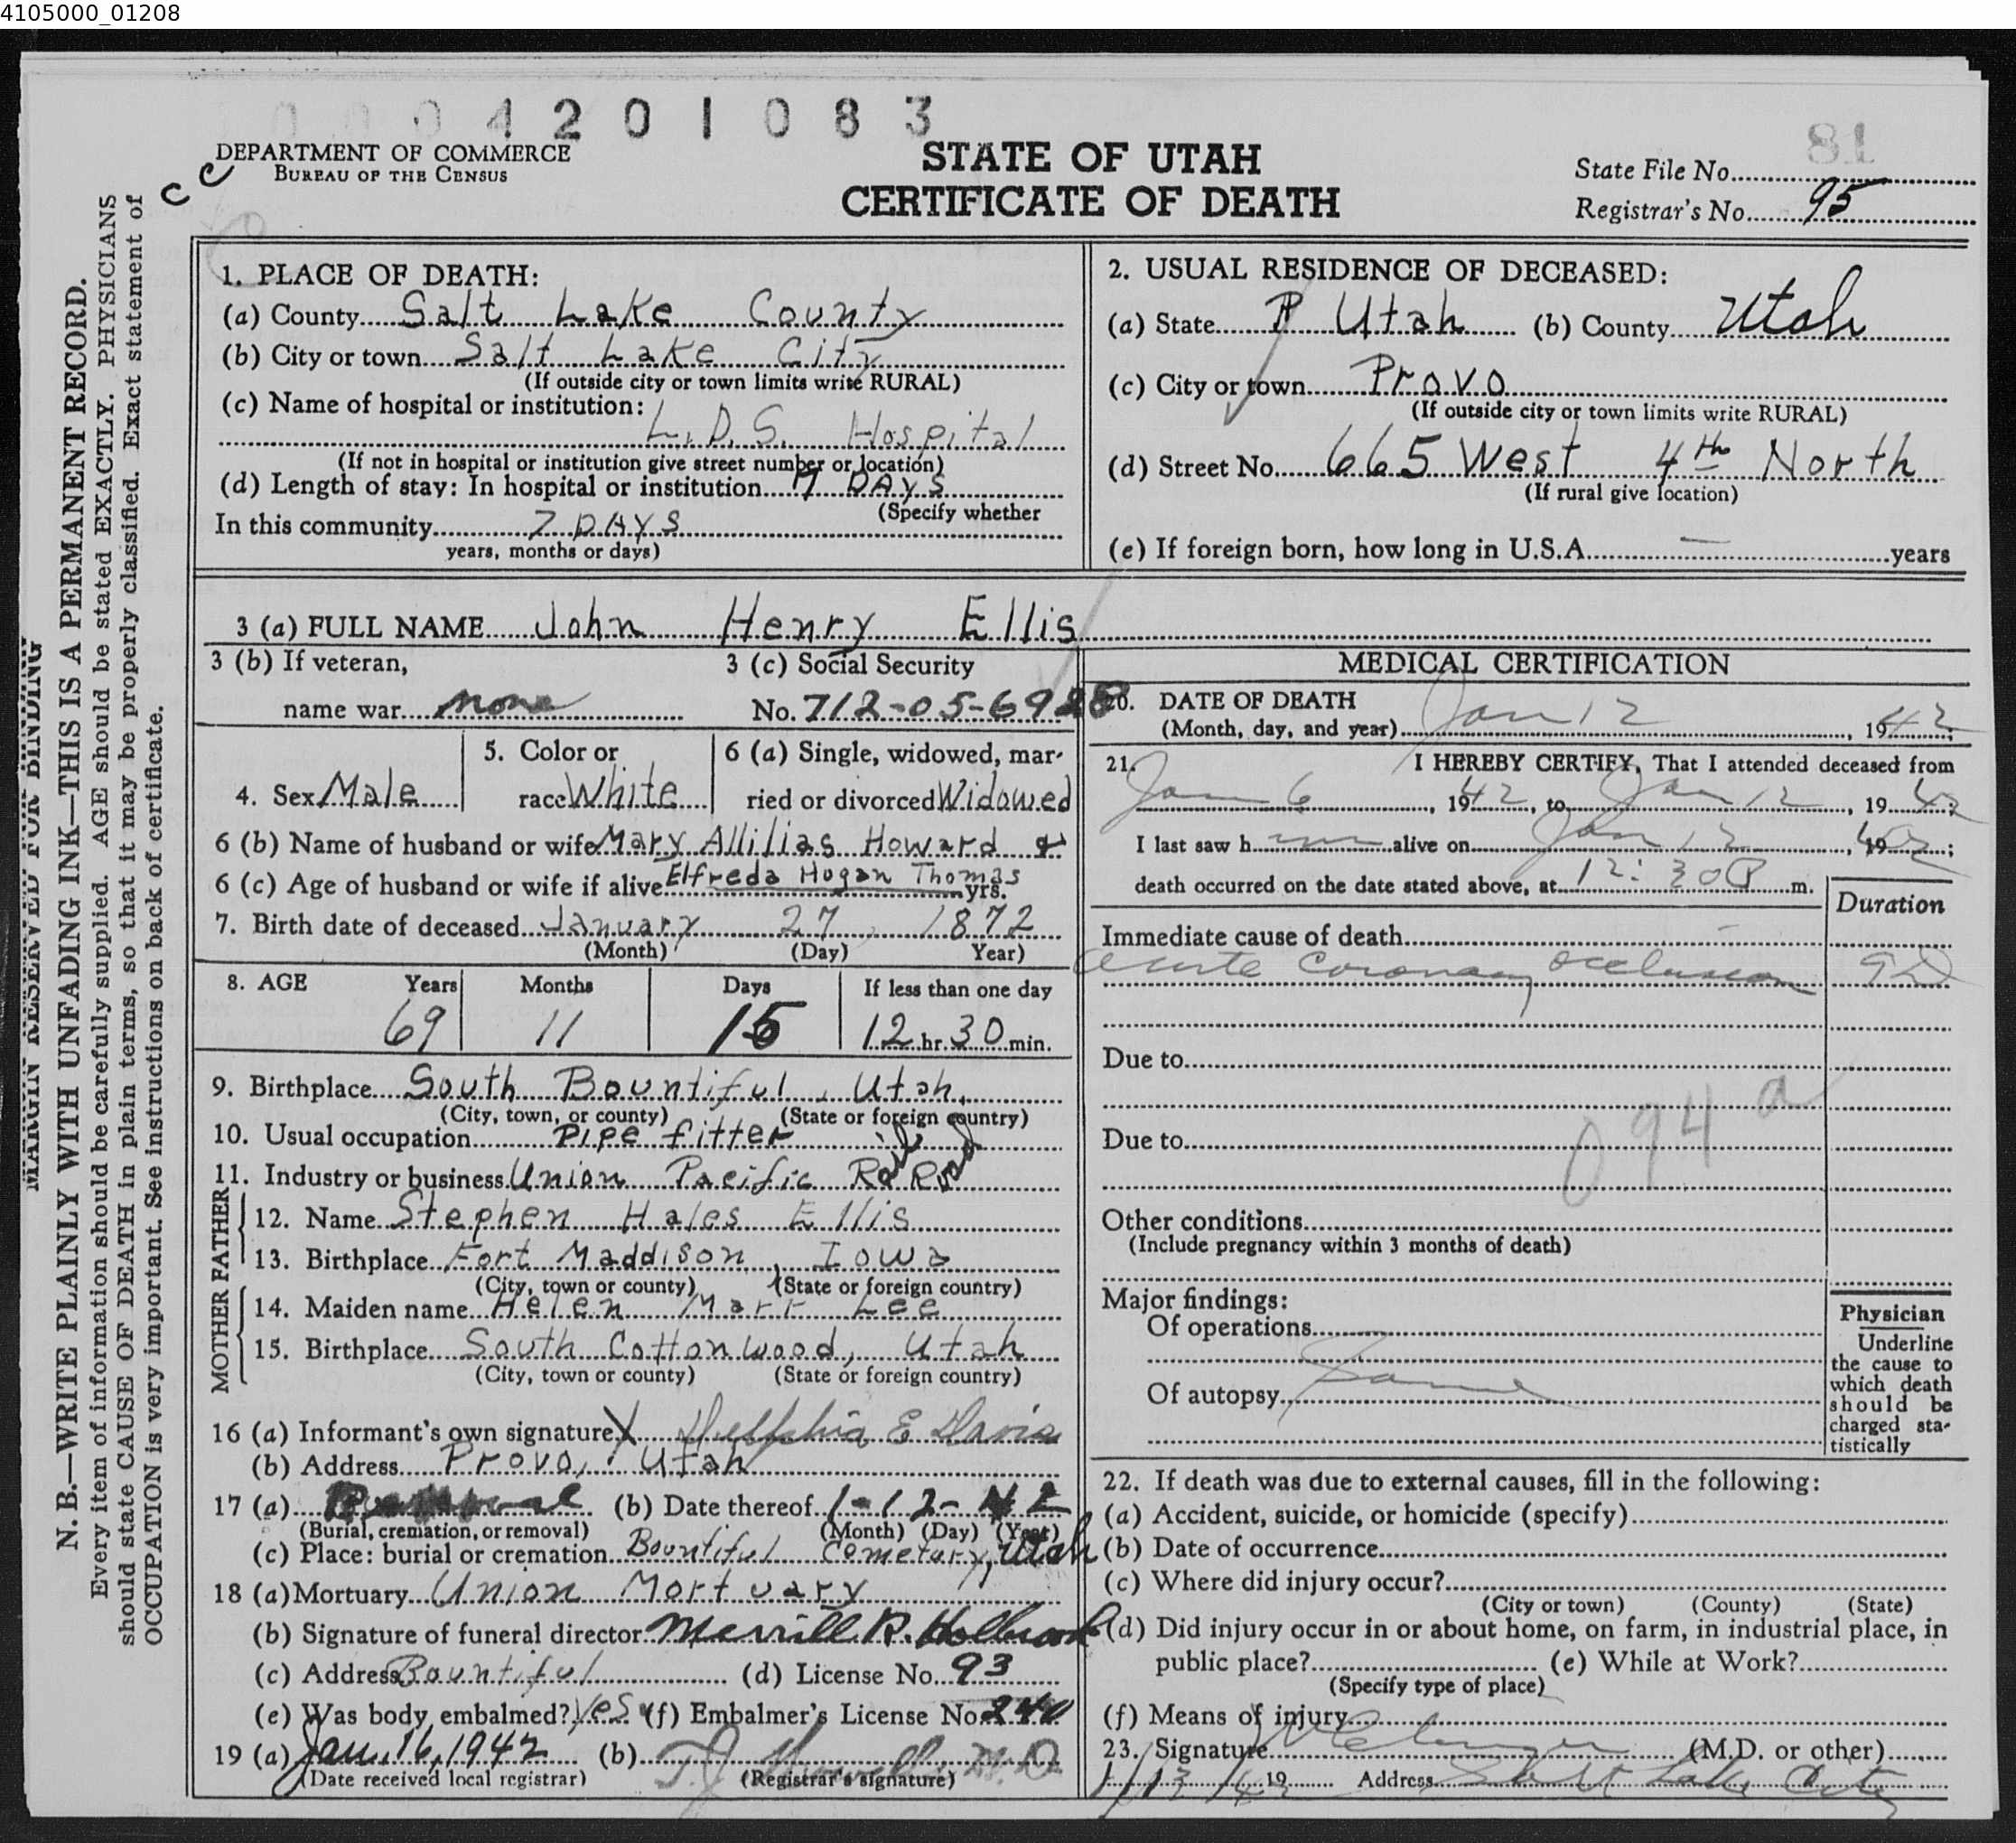 4105000_01208
0 0 0 4 2 0 1 0 8 3
81
DEPARTMENT OF COMMERCE
BUREAU OF THE CENSUS
C C
STATE OF UTAH
CERTIFICATE OF DEATH
State File No.
Registrar's No. 95
MARGIN RESERVED FOR BINDING
N. B.—WRITE PLAINLY WITH UNFADING INK—THIS IS A PERMANENT RECORD.
Every item of information should be carefully supplied. AGE should be stated EXACTLY. PHYSICIANS
should state CAUSE OF DEATH in plain terms, so that it may be properly classified. Exact statement of
OCCUPATION is very important. See instructions on back of certificate.
1. PLACE OF DEATH:
(a) County Salt Lake County
(b) City or town Salt Lake City
(If outside city or town limits write RURAL)
(c) Name of hospital or institution:
L.D.S. Hospital
(If not in hospital or institution give street number or location)
(d) Length of stay: In hospital or institution 7 DAYS
(Specify whether
In this community 7 DAYS
years, months or days)
2. USUAL RESIDENCE OF DECEASED:
(a) State Utah (b) County Utah
(c) City or town Provo
(If outside city or town limits write RURAL)
(d) Street No. 665 West 4th North
(If rural give location)
(e) If foreign born, how long in U.S.A. — years
3 (a) FULL NAME John Henry Ellis
3 (b) If veteran,
name war none
3 (c) Social Security
No. 712-05-6928
4. Sex Male
5. Color or
race White
6 (a) Single, widowed, mar-
ried or divorced Widowed
6 (b) Name of husband or wife Mary Allilias Howard &
6 (c) Age of husband or wife if alive Elfreda Hogan Thomas yrs.
7. Birth date of deceased January 27, 1872
(Month) (Day) Year)
8. AGE Years Months Days If less than one day
69 11 15 12 hr. 30 min.
9. Birthplace South Bountiful, Utah.
(City, town, or county) (State or foreign country)
10. Usual occupation Pipe fitter
11. Industry or business Union Pacific Rail Road
FATHER
12. Name Stephen Hales Ellis
13. Birthplace Fort Maddison, Iowa
(City, town or county) (State or foreign country)
MOTHER
14. Maiden name Helen Marr Lee
15. Birthplace South Cottonwood, Utah
(City, town or county) (State or foreign country)
16 (a) Informant's own signature X E Davis
(b) Address Provo, Utah
17 (a) (b) Date thereof 1-12-42
(Burial, cremation, or removal) (Month) (Day) (Year)
(c) Place: burial or cremation Bountiful Cemetary, Utah
18 (a) Mortuary Union Mortuary
(b) Signature of funeral director Merrill R. Holbrook
(c) Address Bountiful (d) License No. 93
(e) Was body embalmed? Yes (f) Embalmer's License No. 240
19 (a) Jan. 16, 1942 (b) T. J. Howells M.D.
(Date received local registrar) (Registrar's signature)
MEDICAL CERTIFICATION
20. DATE OF DEATH
(Month, day, and year) Jan 12, 1942;
21. I HEREBY CERTIFY, That I attended deceased from
Jan 6, 1942, to Jan 12, 1942;
I last saw him alive on Jan 12, 1942;
death occurred on the date stated above, at 12:30 P m.
Duration
Immediate cause of death
acute coronary occlusion 9D
Due to
094a
Due to
Other conditions
(Include pregnancy within 3 months of death)
Major findings:
Of operations
Of autopsy Same
Physician
Underline
the cause to
which death
should be
charged sta-
tistically
22. If death was due to external causes, fill in the following:
(a) Accident, suicide, or homicide (specify)
(b) Date of occurrence
(c) Where did injury occur?
(City or town) (County) (State)
(d) Did injury occur in or about home, on farm, in industrial place, in
public place? (e) While at Work?
(Specify type of place)
(f) Means of injury
23. Signature (M.D. or other)
1/13/42 19 Address Salt Lake City